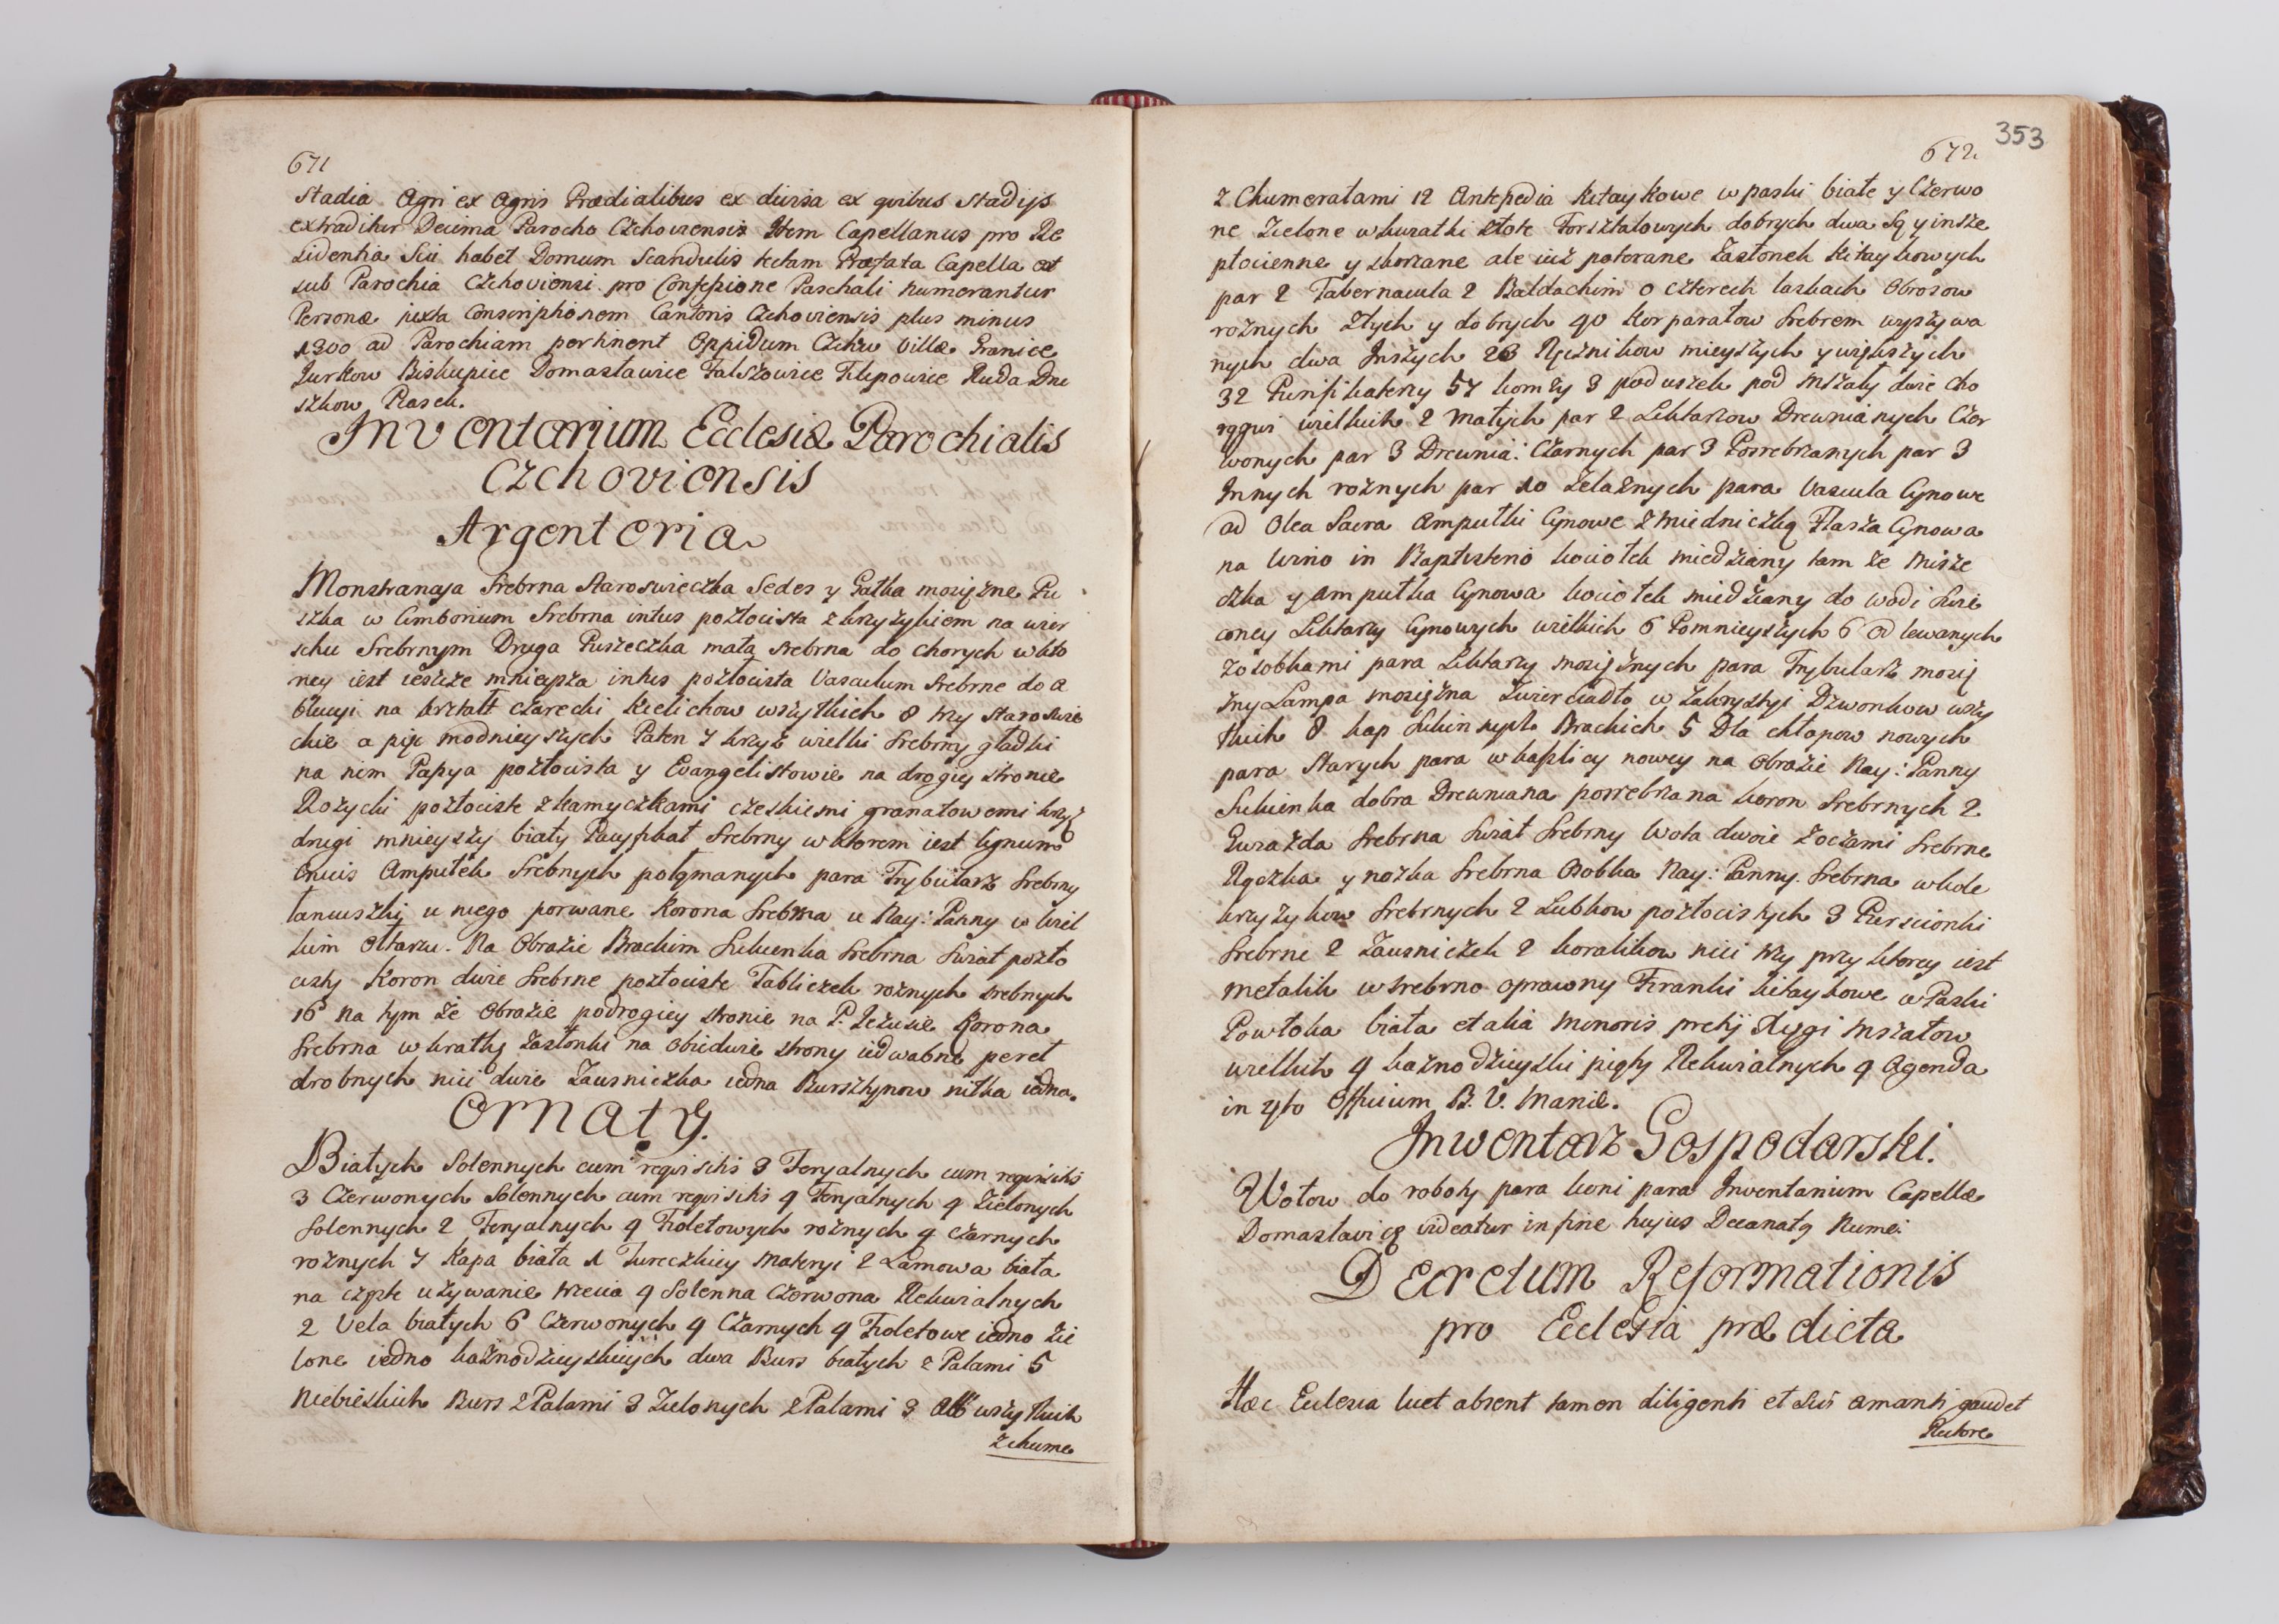 671
Stadia Agri ex Agris Prædialibus ex diursa ex quibus Stadijs
extraditur Decima Parocho Czchoviensis Item Capellanus pro Re
sidentia Sui habet Domum Scandulis tectam Præfata Capella est
sub Parochia Czchoviensi pro Confessione Paschali numerantur
Personæ juxta Conscriptionem Cantoris Czchoviensis plus minus
1300 ad Parochiam pertinent Oppidum Czchw Villæ Granice
Jurkow Biskupice Domasławice Falszowice Filipowice Ruda Dru
szkow Piasek.
Inventarium Ecclesiæ Parochialis
Czchoviensis
Argenteria
Monstrancya Srebrna Staroswieczka Sedes y Gałka mosiężne Pu
szka w Cimborium Srebrna intus pozłocista z krzyżykiem na wier
schu Srebrnym Druga Puszeczka mała srebrna do chorych w kto
rey iest ieszcze mnieysza intus pozłocista Vasculum Srebrne do a
blucyi na krztałt czarecki Kielichow wszytkich 8 trzy staro swie
ckie a pięć modnieyszych Paten 7 krzyż wielki Srebrny gładki
na nim Pasya pozłocista y Evangelistowie na drogiey stronie
Rozycki pozłociste z kamyczkami czeskiemi granatowemi krzyż
drugi mnieyszy biały Pacyfikał Srebrny w ktorem iest lignum
Crucis Ampułek Srebnych połamanych para Trybularz Srebrny
łancuszki u niego porwane Korona Srebrna u Nay: Panny w wiel
kim ołtarzu. Na Obrazie Brackim Sukienka Srebrna Swiat pozło
cisty Koron dwie Srebrne pozłociste Tabliczek roznych srebnych
16 Na tym że Obrazie podrogiey stronie na P: Jezusie Korona
Srebrna w kratky Zasłonki na obiedwie strony iedwabne pereł
drobnych nici dwie Zausniczka iedna Bursztynow nitka iedna.
Ornaty.
Białych Solennych cum requisitis 3 Feryalnych cum requisitis
3 Czerwonych Solennych cum requisitis 4 Feryalnych 4 Zielonych
Solennych 2 Feryalnych 4 Fioletowych roznych 4 czarnych
roznych 7 Kapa biała 1 Tureczkiey Materyi 2 Lamowa biała
na częste używanie trzecia 4 Solenna Czerwona Rekwialnych
2 Vela białych 6 Czerwonych 4 Czarnych 4 Fioletowe iedno Zie
lone iedno kaznodzieyskieych dwa Burs białych z Palami 5
Niebieskich Burs z Palami 3 Zielonych z Palami 3 Alb wszytkich
z chume
353
672.
z Chumerałami 12 Antepedia Kitaykowe w paski białe y Czerwo
ne Zielone w kwiatki złote Forształowych dobrych dwa Są y insze
płocienne y skorzane ale iuż poterane Zasłonek Kitaykowych
par 2 Tabernacula 2 Baldachim o czterech laskach Obrosow
roznych złych y dobrych 40 Korporałow Srebrem wyszywa
nych dwa Inszych 28 Ręcznikow mieyszych y większych
32 Purifikaterzy 57 komzy 3 poduszek pod mszały dwie cho
rągwi wielkich 2 Małych par 2 Lichtarzow Drewnianych Czer
wonych par 3 Drewnia: Czarnych par 3 Posrebrzanych par 3
Innych roznych par 10 żelaznych para Vascula Cynowe
ad Olea Sacra Ampułki Cynowe z miedniczką Flasza Cynowa
na Wino in Baptisterio kociołek miedziany tam że Misze
czka y ampułka Cynowa kociołek miedziany do wodi swię
coney Lichtarzy Cynowych wielkich 6 Pomnieyszych 6 od lewanych
zosobkami para Lichtarzy mosiężnych para Trybularz mosię
żny Lampa mosiężna Zwierciadło w Zakrystyi Dzwonkow wszy
tkich 8 kap Sukiennych Brackich 5 Dla chłopow nowych
para Starych para w kaplicy nowey na Obrazie Nay: Panny
Sukienka dobra Drewniana posrebrzana koron Srebrnych 2
Gwiazda Srebrna Swiat Srebrny Wota dwoie z oczami Srebrne
Rączka y nożka Srebrna Osobka Nay: Panny Srebrna w kole
krzyżykow Srebrnych 2 Lubkow pozłocistych 3 Pierscionki
Srebrne 2 Zausniczek 2 koralikow nici trzy przy ktorey iest
metalik w srebrno oprawny Firanki kitaykowe w Paski
Powłoka biała et alia minoris pretij Xięgi Mszałow
wielkich 4 kaznodzieyski piąty Rekwialnych 4 Agenda
in 4to Officium B. V. Mariæ.
Inwentarz Gospodarski.
Wołow do roboty para koni para Inventarium Capellæ
Domasłavicę videatur in fine hujus Decanatę Nume:
Decretum Reformationis
pro Ecclesia prædicta
Hæc Ecclesia licet absent tamen diligenti et Sui amanti gaudet
Rectore